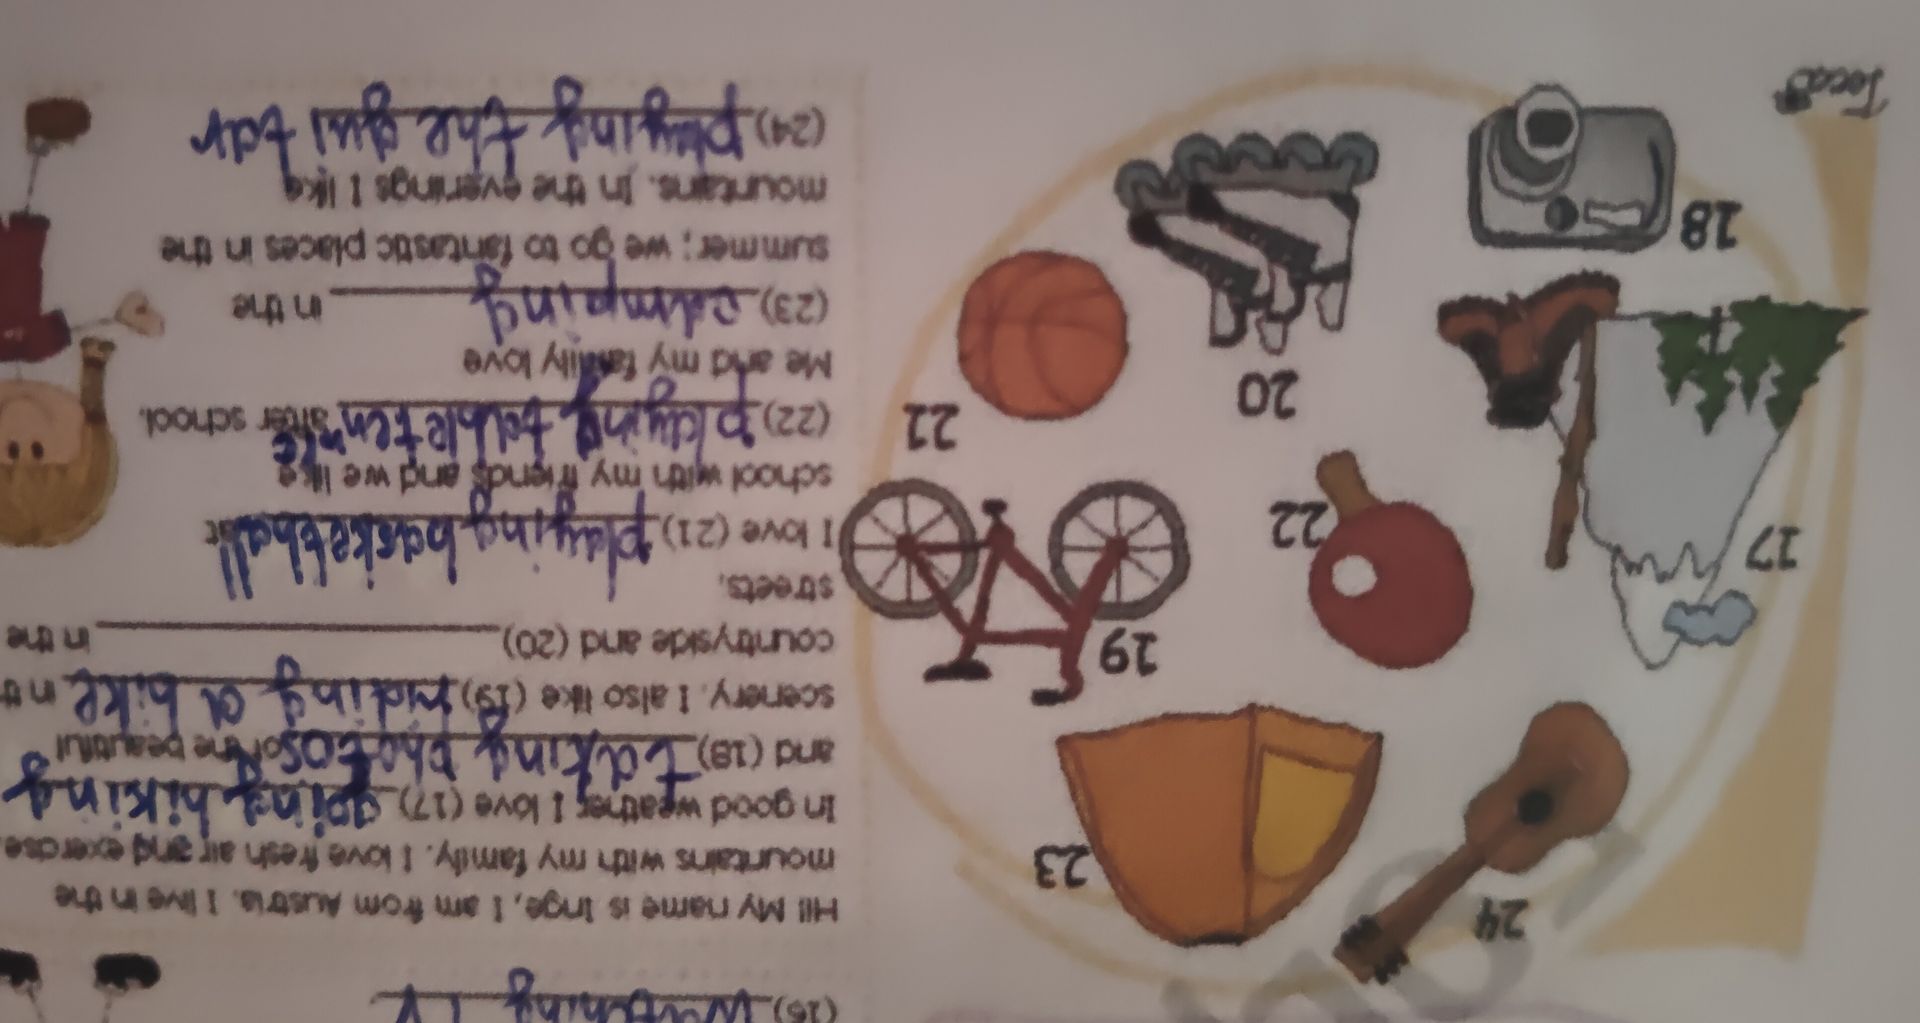 (16) watching TV
Hi! My name is Inge, I am from Austria. I live in the
mountains with my family. I love fresh air and exercise.
In good weather I love (17) going hiking
and (18) taking photos of the beautiful
scenery. I also like (19) riding a bike in th
countryside and (20) in the
streets.
I love (21) playing basketball at
school with my friends and we like
(22) playing table tennie after school.
Me and my family love
(23) camping in the
summer; we go to fantastic places in the
mountains. In the evenings I like
(24) playing the gui tar
24
23
19
17
22
21
20
18